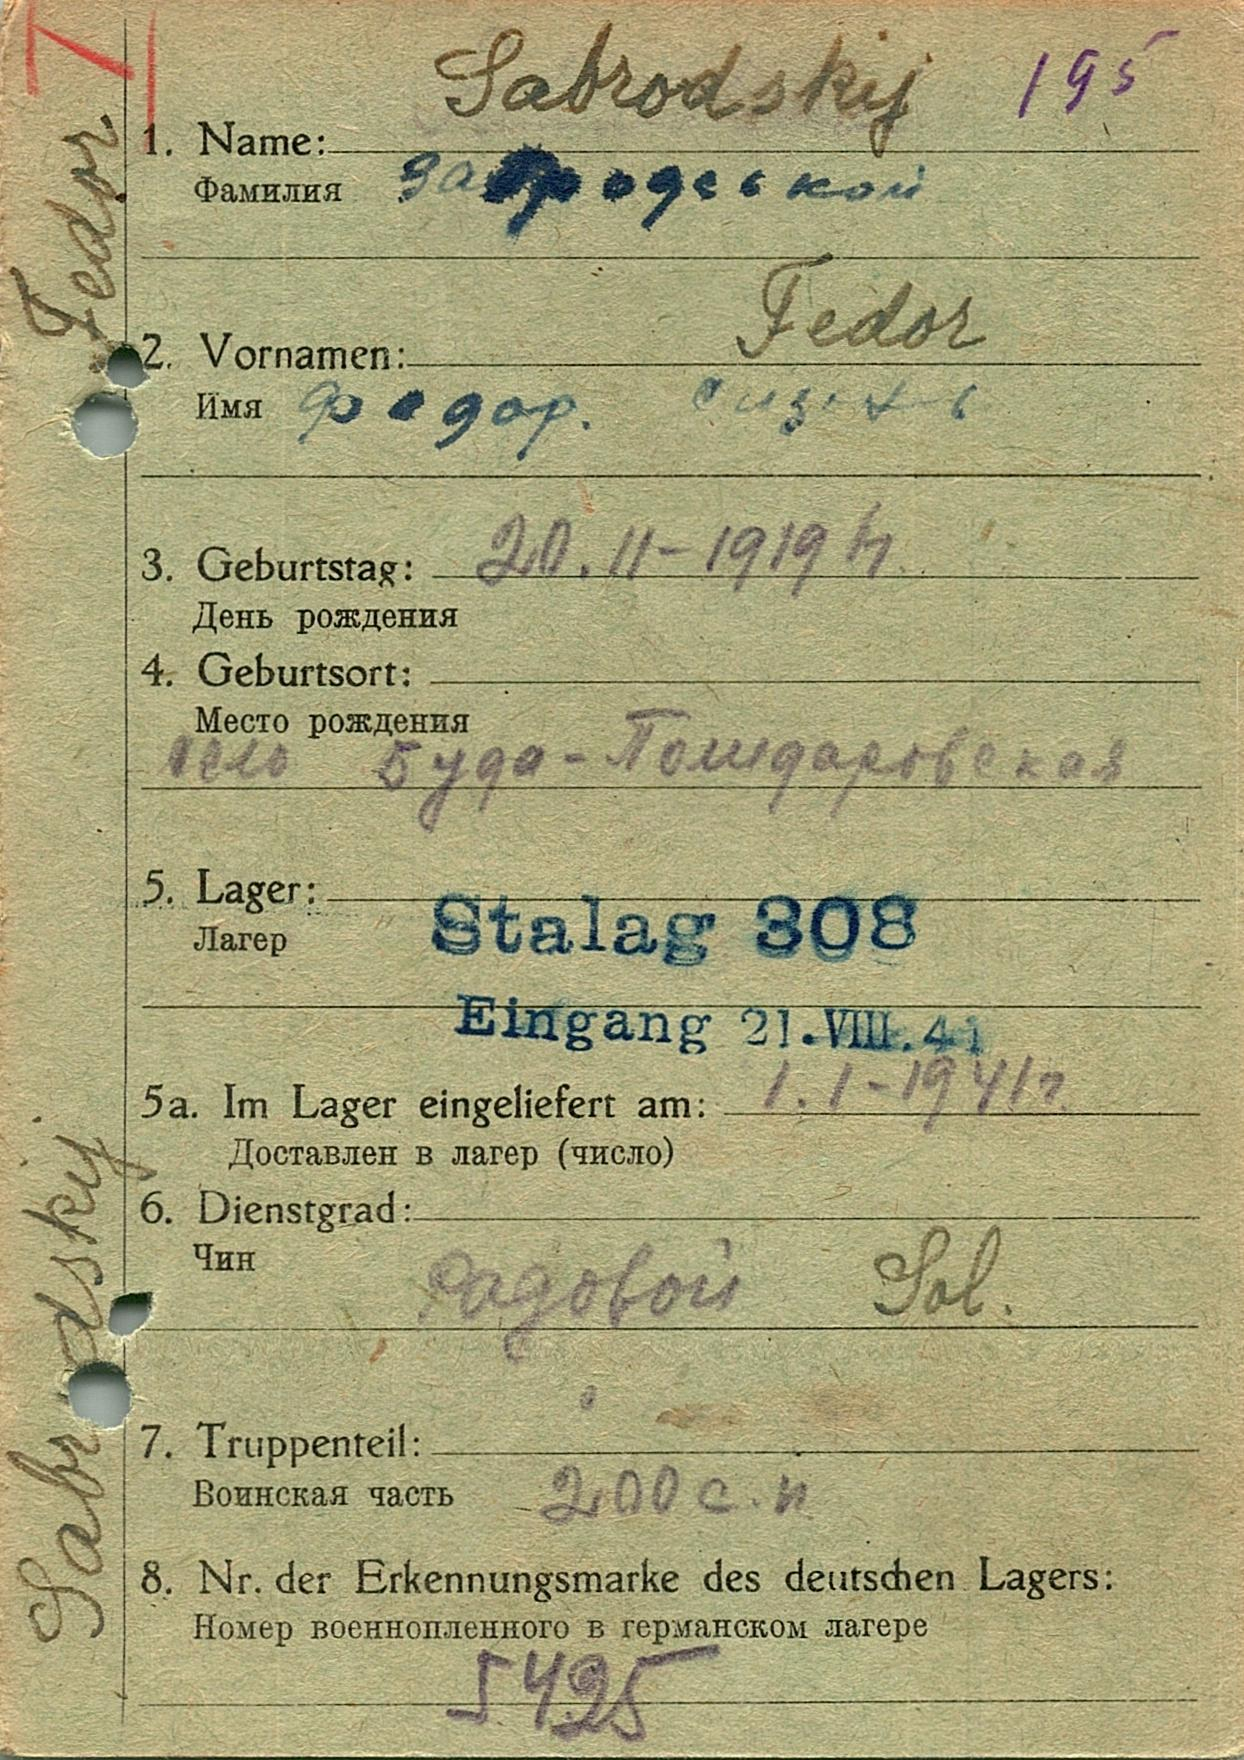 Sabrodskij 195
1. Name:
Фамилия
2. Vornamen: Fedor
Имя Федор.
3. Geburtstag: 20.11-1919 г.
День рождения
4. Geburtsort:
Место рождения
село Буда-
5. Lager:
Лагер Stalag 308
Eingang 21.VIII.41
5a. Im Lager eingeliefert am: 1.1-1941 г.
Доставлен в лагер (число)
6. Dienstgrad:
Чин
радовой Sol.
7. Truppenteil:
Воинская часть 200 с.п
8. Nr. der Erkennungsmarke des deutschen Lagers:
Номер военнопленного в германском лагере
5495
Sabrodskij Fedor